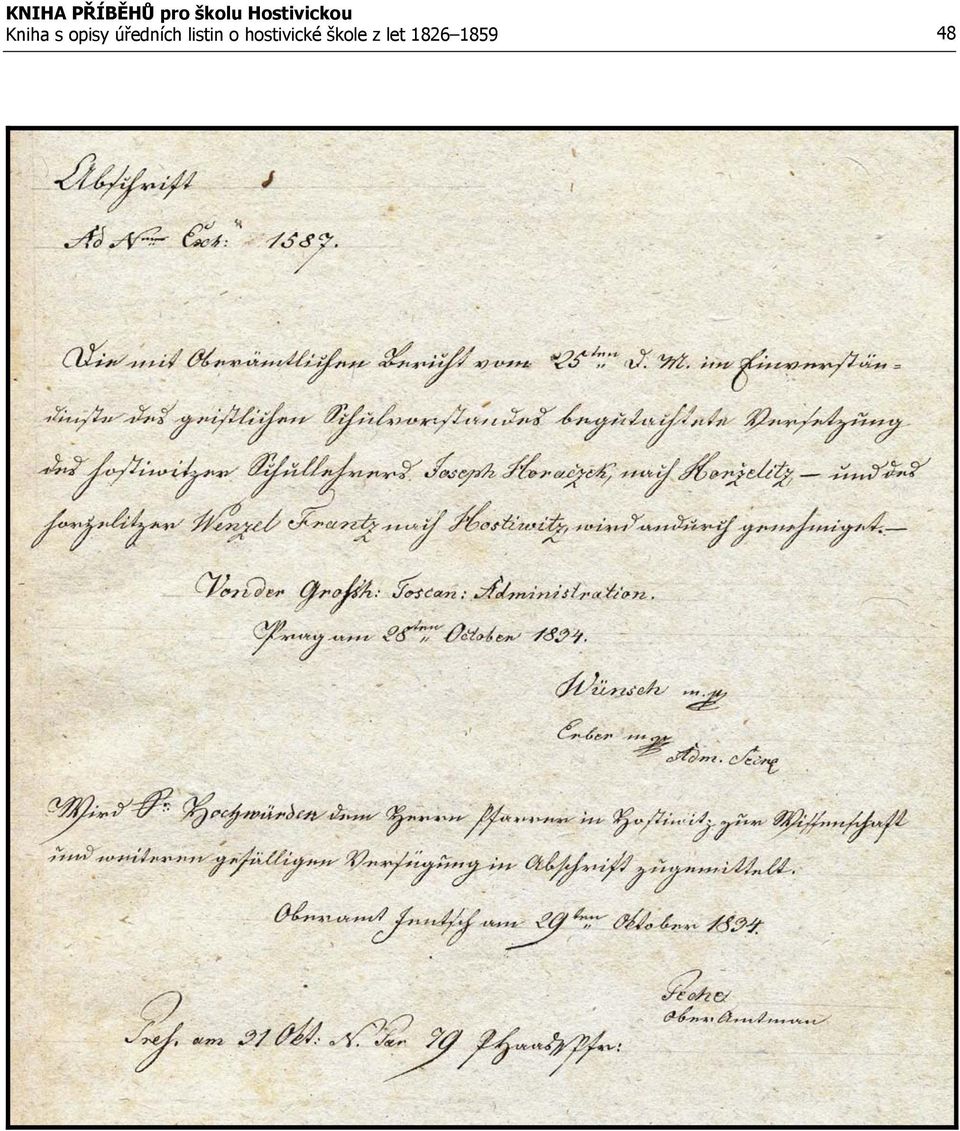 KNIHA PŘÍBĚHŮ pro školu Hostivickou
Kniha s opisy úředních listin o hostivické škole z let 1826–1859 48
Abschrift
Ad Num Exh: 1587.
Die mit Oberämtlichen Bericht vom 25ten d. M. im Einverstän=
dniste des geistlichen Schulvorstandes begutachtete Versetzung
des hostiwitzer Schullehrers Joseph Horaczek, nach Horzelitz, — und des
horzelitzer Wenzel Frantz nach Hostiwitz, wird andurch genehmiget. —
Von der Grossh: Toscan: Administration.
Prag am 28ten October 1834.
Wünsch m.p.
Erber m.p.
Adm.
Wird Sr. Hochwürden dem Herrn Pfarrer in Hostiwitz zur Wissenschaft
und weiteren gefälligen Verfügung in Abschrift zugemittelt.
Oberamt Jentsch am 29ten Oktober 1834.
Peche
Ober Amtman
Pres. am 31 Okt: N. 79 P Haas Pfr: